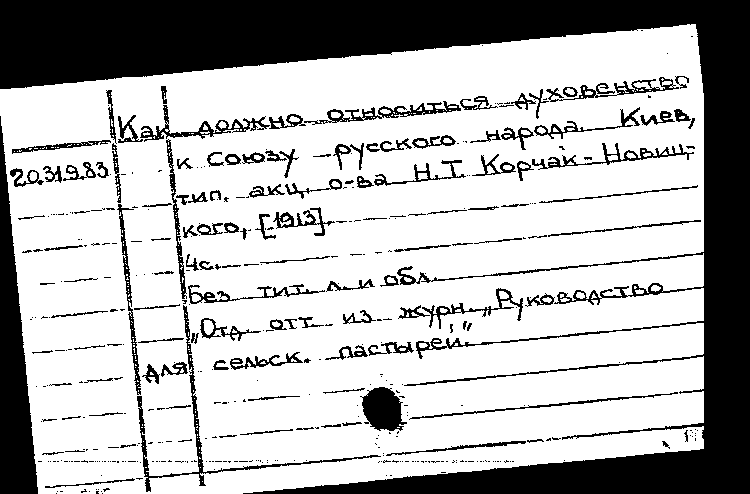 Как должно относиться духовенство
20.319.83 к Союзу русского народа. Киев,
тип. акц. о-ва Н.Т. Корчак-Новиц-
кого, [1913].
4с.
Без тит. л. и обл.
„Отд. отт. из журн. „Руководство
для сельск. пастырей."